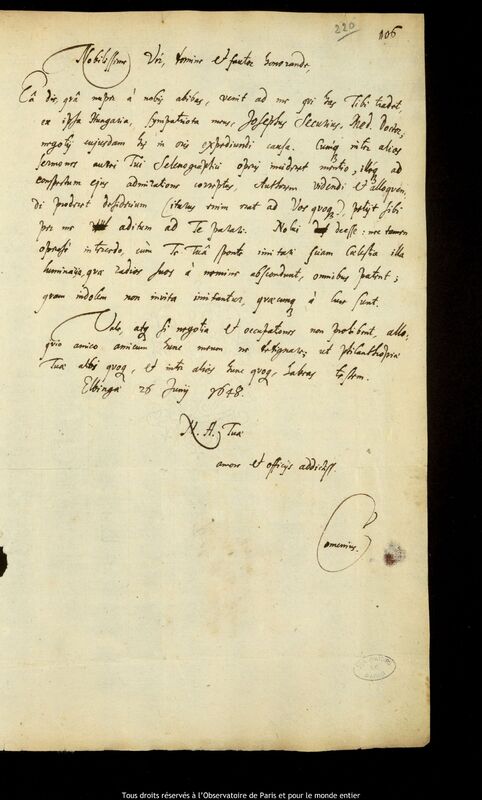 220
106
Nobilissime Vir, domine et fautor honorande,
Eâ die, quâ nuper à nobis abibas, venit ad me qui has Tibi tradet
ex ipsa Hungaria, sympatriota meus, Josephus Securius, Med. Doctor,
negotij cujusdam his in oris expediundi causa. Cumq; inter alios
sermones aurei Tui Selenographici operis incideret mentio, illeq; ad
conspectum ejus admiratione correptus, Authorem videndi et alloquen
di proderet desiderium (iturus enim erat ad Vos quoq;), petijt sibi
per me aditum ad Te parari. Nolui deesse: nec tamen
operosè intercedo, cùm Te Tuâ sponte imitari sciam Cœlestia illa
luminaria, quæ radios suos à nemine abscondunt, omnibus patent;
quam indolem non invitè imitantur, quæcunq; à luce sunt.
Vale, atq; si negotia et occupationes non prohibent, allo-
quio amico amicum hunc meum ne dedigneris; ut philanthropiæ
Tuæ alios quoq;, et inter alios hunc quoq;, habeas testem.
Elbingæ 26 Junij 1648.
N. A. Tuæ
amore et officijs addictiss.
Comenius.
OBSERVATOIRE DE PARIS
Tous droits réservés à l'Observatoire de Paris et pour le monde entier